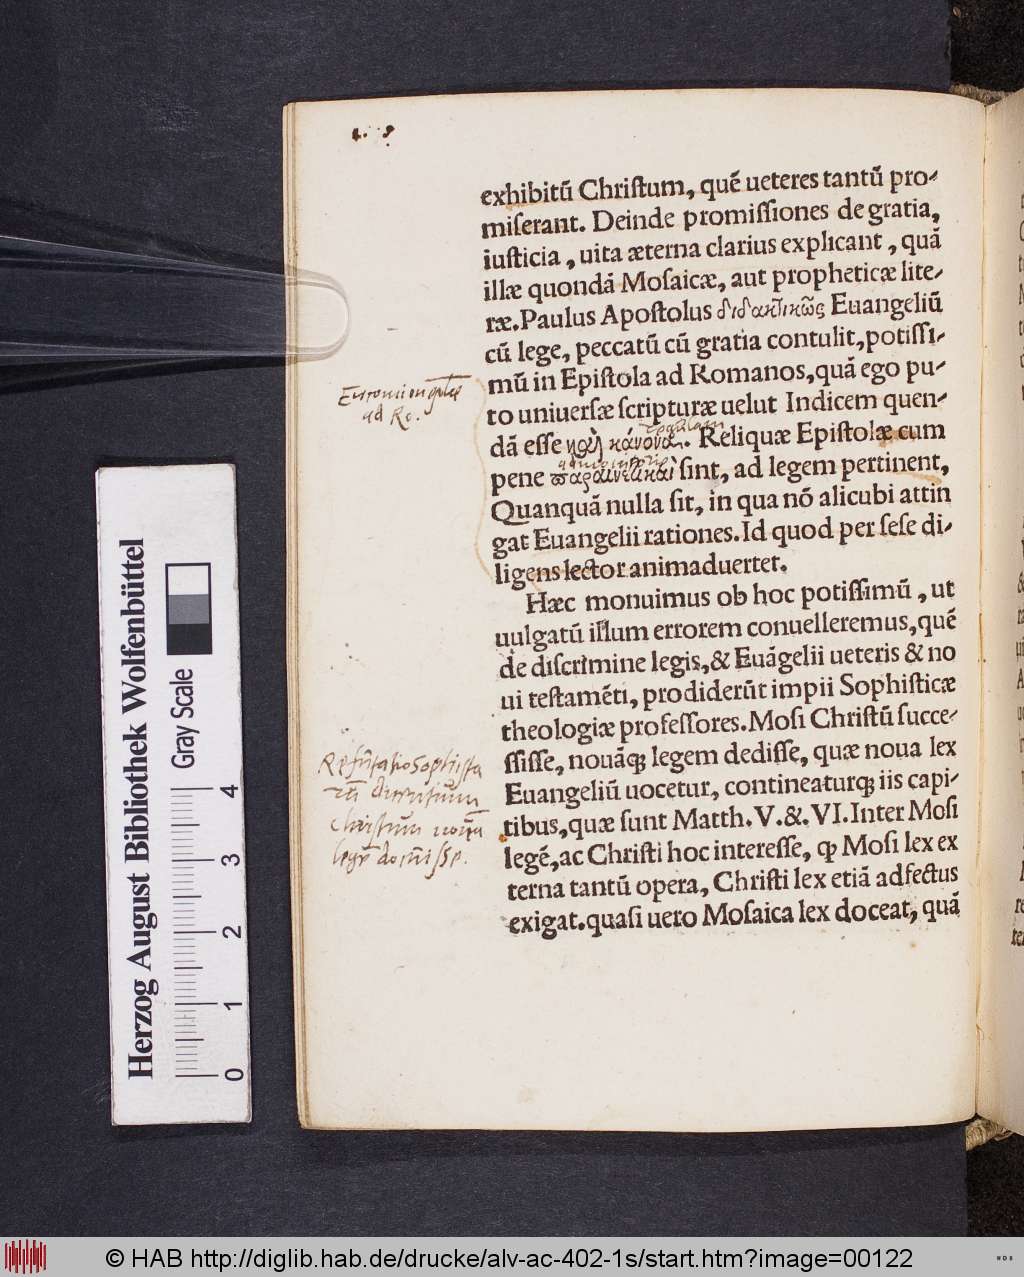 exhibitū Christum, quē ueteres tantū pro-
miserant. Deinde promissiones de gratia,
iusticia, uita æterna clarius explicant, quā
illæ quondā Mosaicæ, aut propheticæ lite-
ræ. Paulus Apostolus διδακτικῶς Euangeliū
cū lege, peccatū cū gratia contulit, potissi-
mū in Epistola ad Romanos, quā ego pu-
to uniuersæ scripturæ uelut Indicem quen-
regulam
dā esse καὶ κάνονα. Reliquæ Epistolæ cum
pene παραινετικαὶ sint, ad legem pertinent,
Quanquā nulla sit, in qua nō alicubi attin
gat Euangelii rationes. Id quod per sese di-
ligens lector animaduertet.
Hæc monuimus ob hoc potissimū, ut
uulgatū illum errorem conuelleremus, quē
de discrimine legis, & Euāgelii ueteris & no
ui testamēti, prodiderūt impii Sophisticæ
theologiæ professores. Mosi Christū succe-
ssisse, nouāq; legem dedisse, quæ noua lex
Euangeliū uocetur, contineaturq; iis capi-
tibus, quæ sunt Matth. V. & VI. Inter Mosi
legē, ac Christi hoc interesse, ꝙ Mosi lex ex
terna tantū opera, Christi lex etiā adfectus
exigat. quasi uero Mosaica lex doceat, quā
ad Ro.
Christum
Herzog August Bibliothek Wolfenbüttel
Gray Scale
0 1 2 3 4
© HAB http://diglib.hab.de/drucke/alv-ac-402-1s/start.htm?image=00122